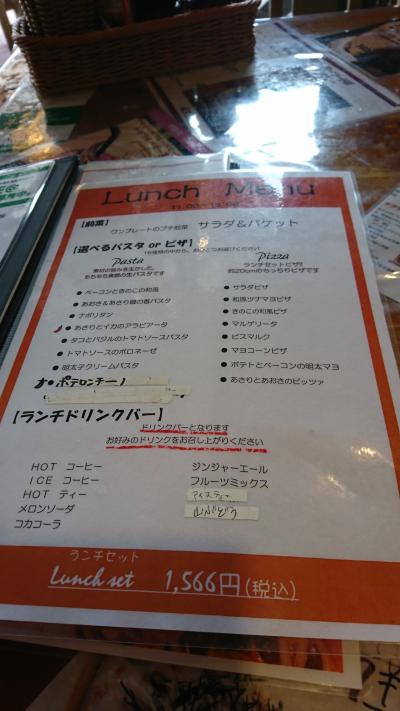 Lunch Menu
【前菜】 ワンプレートのプチ前菜 サラダ&バケット
【選べるパスタ or ピザ】
Pasta
素材の旨みを生かした、
もちもち食感の生パスタです
● ベーコンときのこの和風
● あおさ&あさり磯の香パスタ
● ナポリタン
● あさりとイカのアラビアータ
● タコとバジルのトマトソースパスタ
● トマトソースのボロネーゼ
● 明太子クリームパスタ
Pizza
ランチセットピザ!!
約20cmのもっちりピザです
● サラダピザ
● 和風ツナマヨピザ
● きのこの和風ピザ
● マルゲリータ
● ビスマルク
● マヨコーンピザ
● ポテトとベーコンの明太マヨ
● あさりとあおさのピッツァ
【ランチドリンクバー】
ドリンクバーとなります
お好みのドリンクをお召し上がりください
HOT コーヒー
ICE コーヒー
HOT ティー
メロンソーダ
コカコーラ
ジンジャーエール
フルーツミックス
アイスティー
山ぶどう
ランチセット
Lunch set 1,566円(税込)